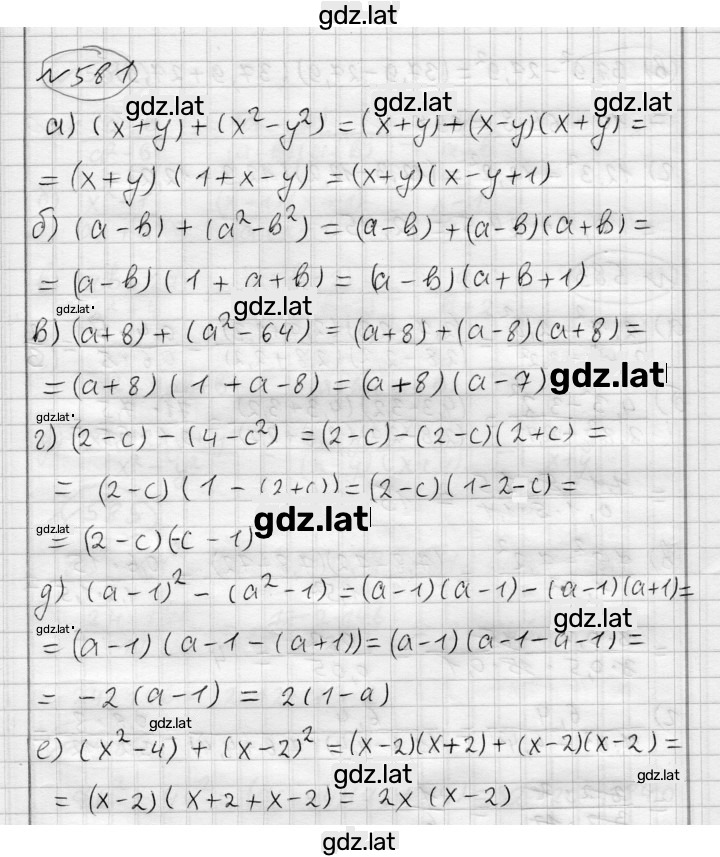 gdz.lat
№581
gdz.lat gdz.lat gdz.lat
а) (x+y)+(x²-y²) = (x+y)+(x-y)(x+y) =
= (x+y) (1+x-y) = (x+y)(x-y+1)
б) (a-b) + (a²-b²) = (a-b) + (a-b)(a+b) =
= (a-b) (1 + a+b) = (a-b)(a+b+1)
gdz.lat gdz.lat
в) (a+8) + (a²-64) = (a+8)+(a-8)(a+8) =
= (a+8) (1 +a-8) = (a+8) (a-7) gdz.lat
gdz.lat
г) (2-c) - (4-c²) = (2-c)-(2-c)(2+c) =
= (2-c) (1 - (2+c)) = (2-c)(1-2-c) =
gdz.lat gdz.lat
= (2-c)(-c-1)
д) (a-1)² - (a²-1) = (a-1)(a-1) - (a-1)(a+1)=
gdz.lat gdz.lat
= (a-1) (a-1-(a+1)) = (a-1) (a-1-a-1) =
= -2 (a-1) = 2(1-a)
gdz.lat
е) (x²-4) + (x-2)² = (x-2)(x+2) + (x-2)(x-2) =
gdz.lat gdz.lat
= (x-2) (x+2+x-2) = 2x (x-2)
gdz.lat